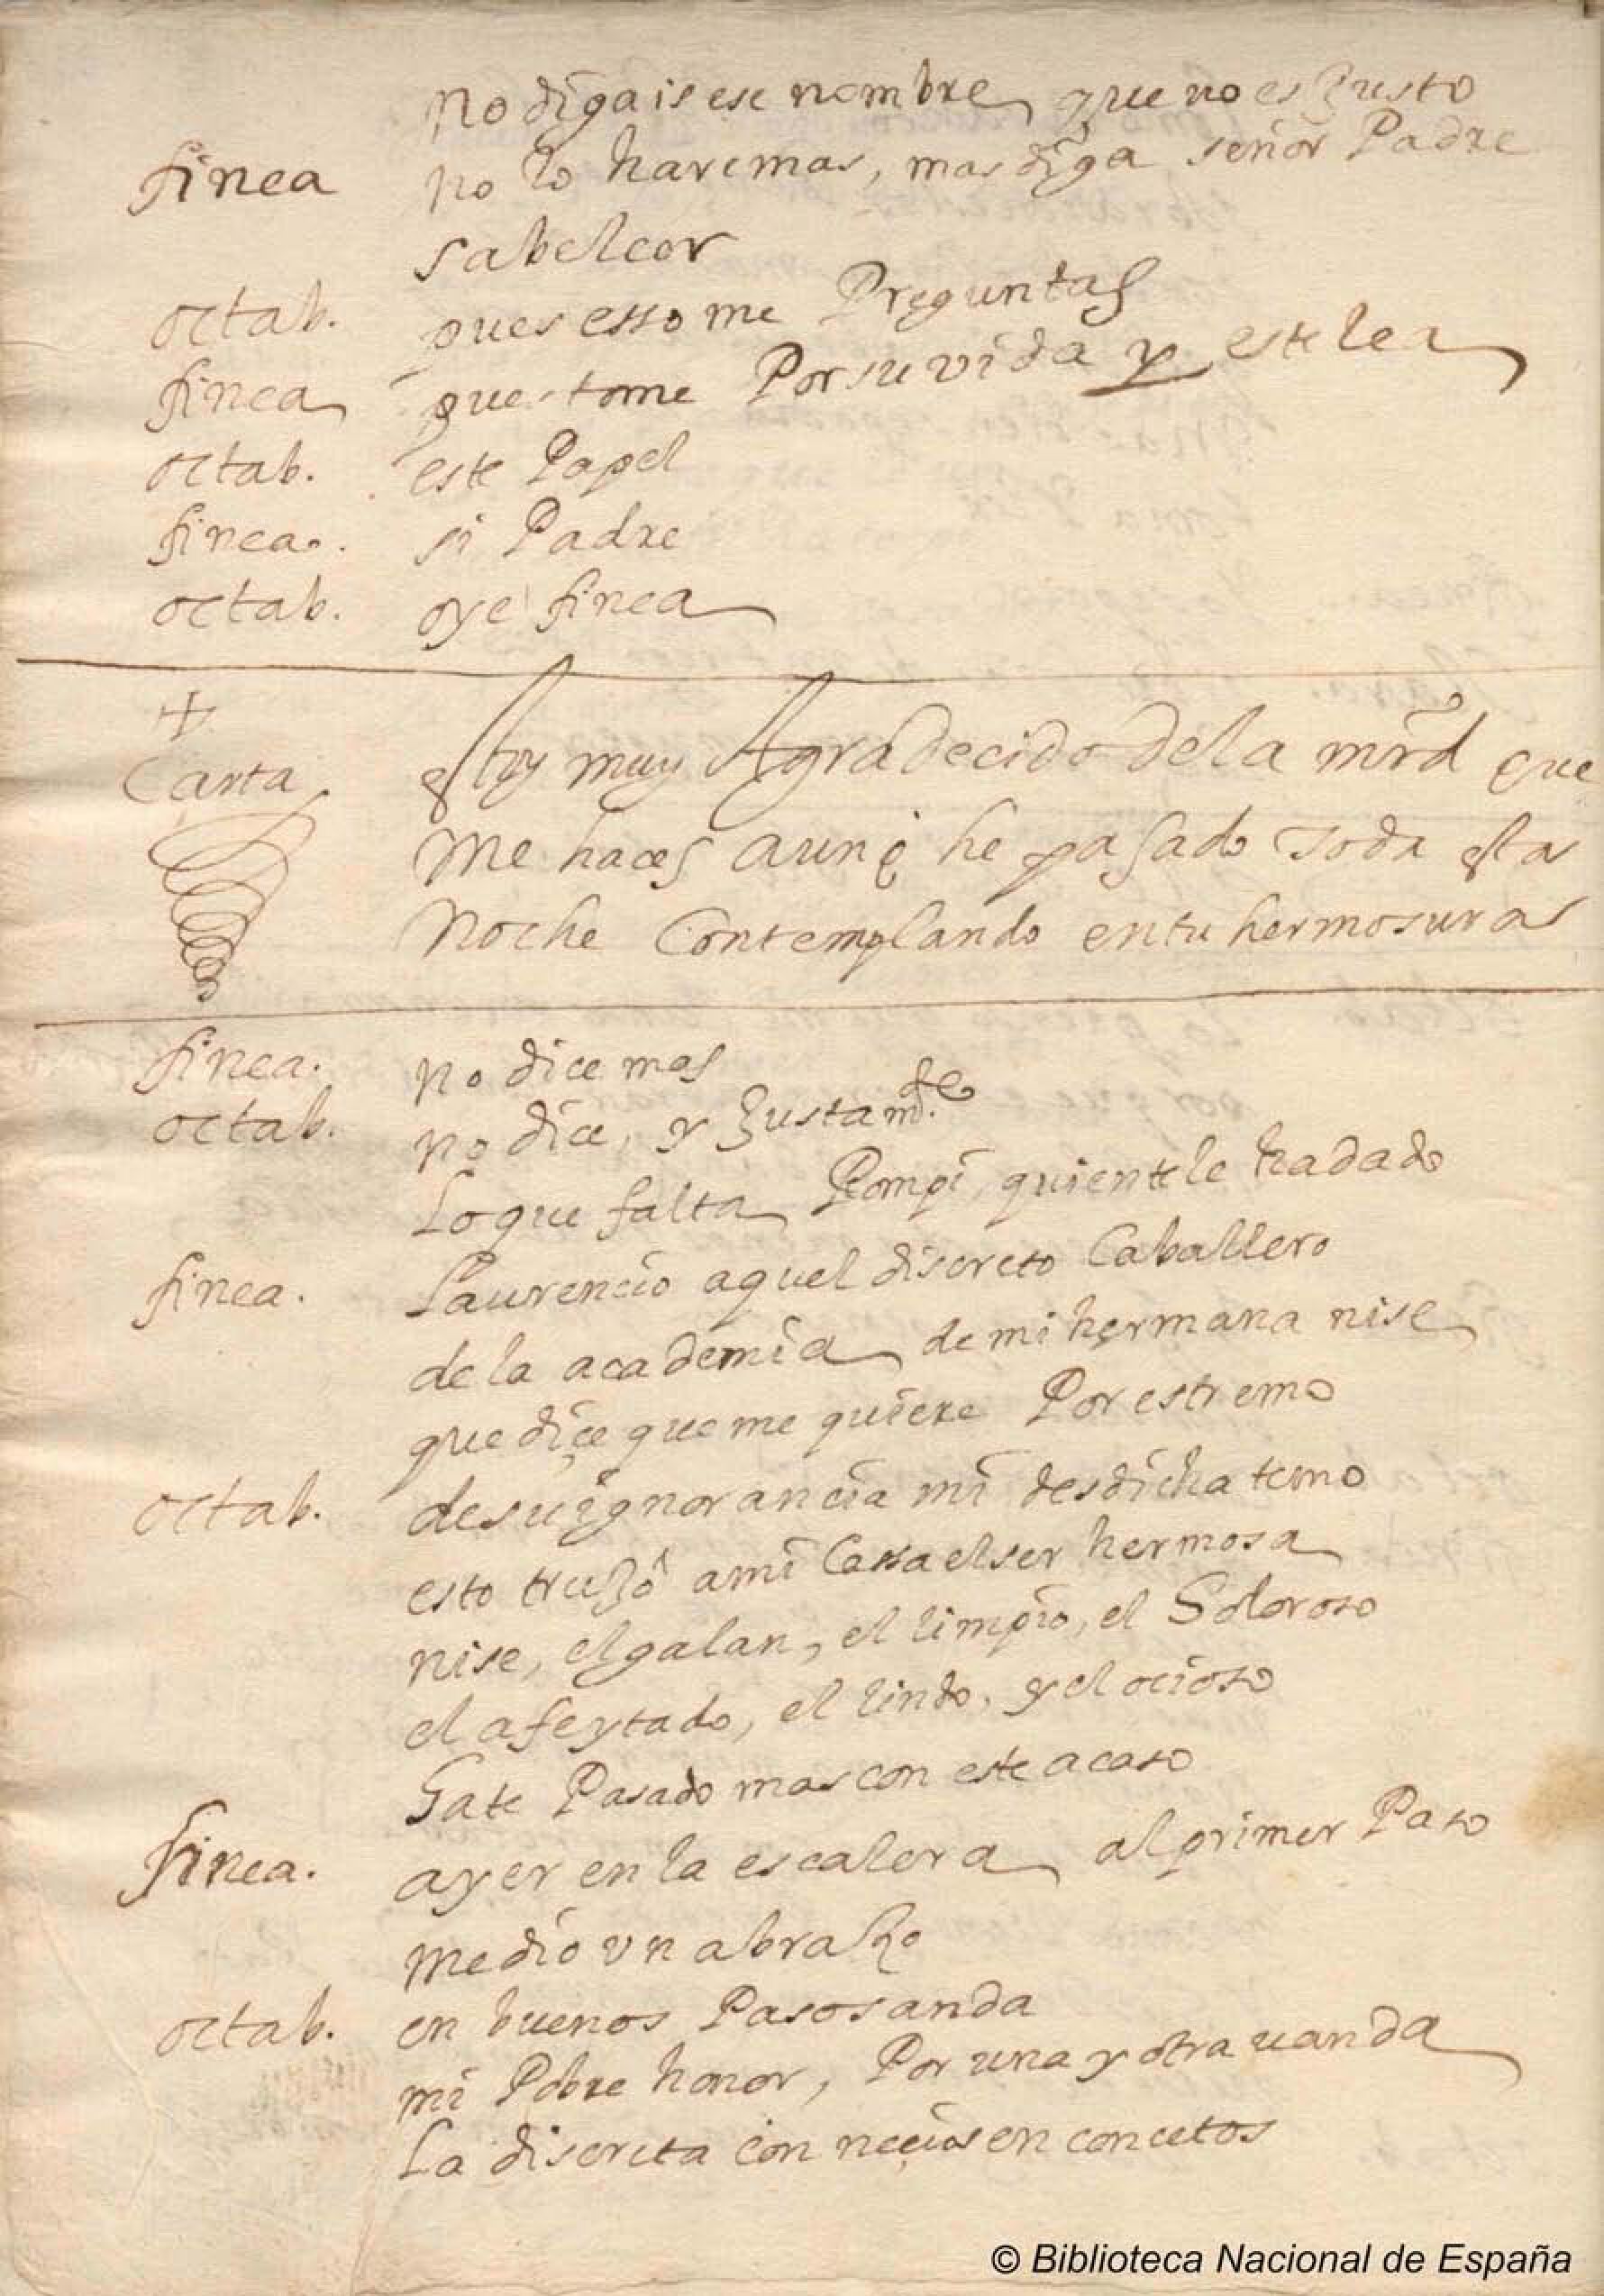 no digais ese nombre, que no es Justo
finea no lo haremas, mas diga señor Padre
sabe leer
octab. pues esso me Preguntas
finea que tome Por su vida y este lea
octab. este Papel
finea. si Padre
octab. oye finea
Carta estoy muy Agradecido de la mrd que
me haces aunq he pasado toda esta
Noche Contemplando en tu hermosura
finea. no dice mas
octab. no dice, y Justamte
Lo que falta Rompi, quien te le ha dado
finea. Laurencio aquel discreto Caballero
de la academia de mi hermana nise
que dice que me quiere Por estremo
octab. de su ignorancia mi desdicha temo
esto truJo a mi Cassa el ser hermosa
nise, el galan, el limpio, el oloroso
el afeytado, el lindo, y el ocioso
finea. ayer en la escalera al primer Paso
me dio vn abraZo
octab. en buenos Pasos anda
mi Pobre honor, Por una y otra uanda
La discreta con necios en concetos
© Biblioteca Nacional de España